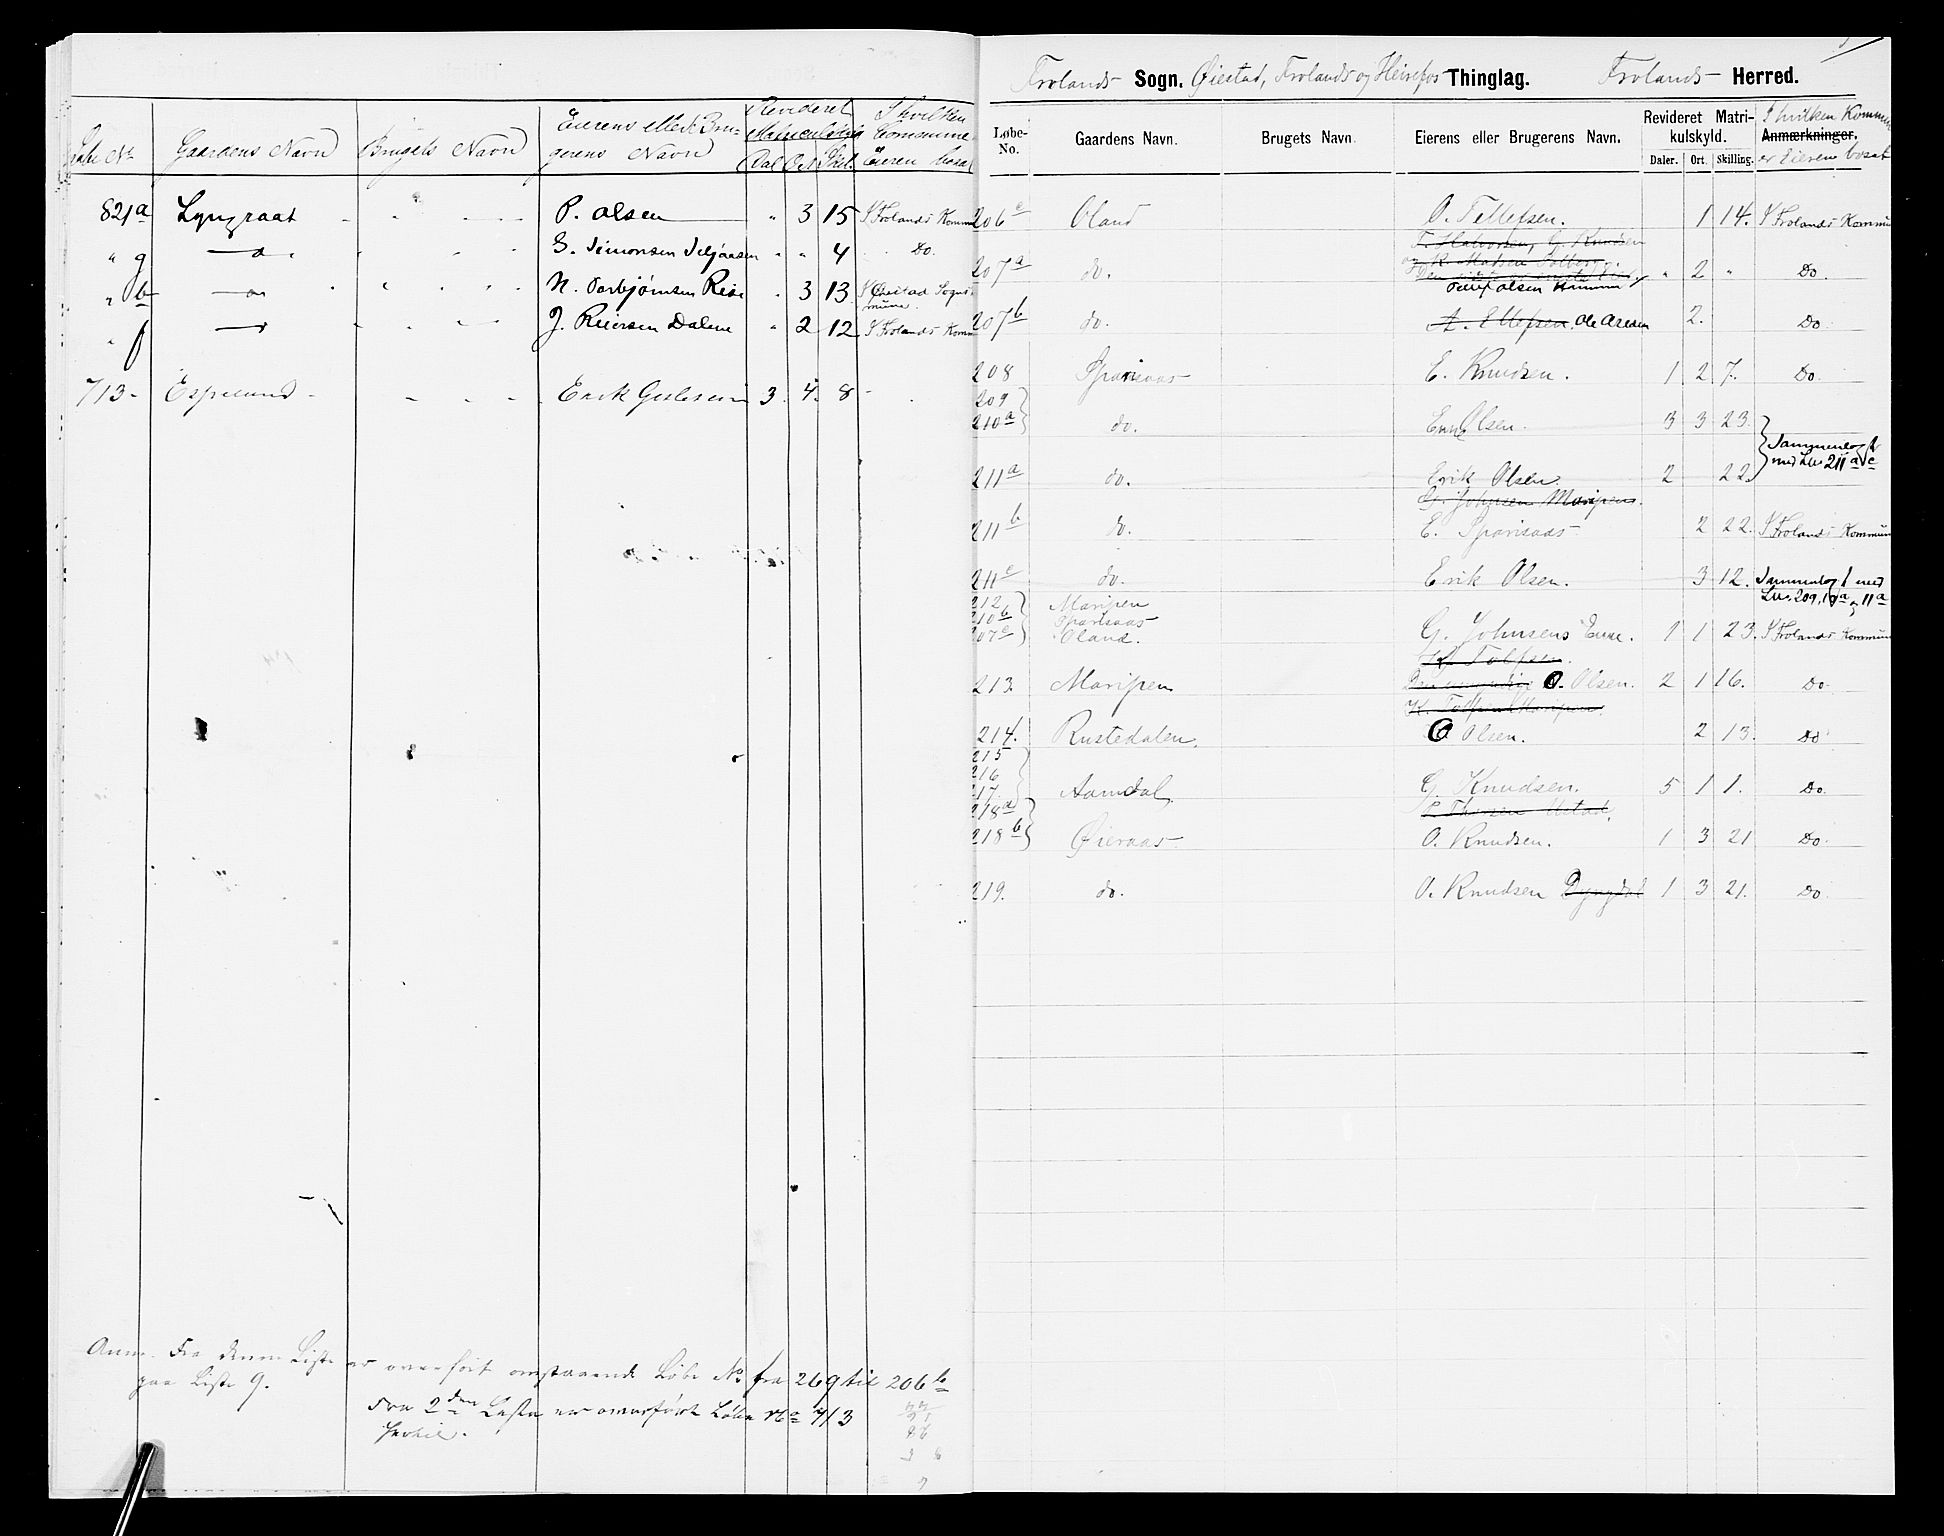 Løbe No
Gaardens Navn
Brugets Navn
Eierens eller Bru-
gerens Navn
Revideret
Dal Ort Skil.
I hvilken
Kommune
Eieren bosat
821a Lyngraat - - - P. Olsen " 3 15 I Frolands Kommu
" g - d. S. Simonsen Seljaasen " " 4 Do.
" b - d. N. Torbjørnsen Reise " 3 13 I Øiestad Sogns
mune.
" f - d J. Reiersen Dalene " 2 12 I Frolands Komm
713 - Espelund - - - - Erik Gislesen 3. 4. 8 -
Anm. Fra denne Liste er overført omstaaende Løbe No fra 269 til 206b
paa Liste 9.
Fra 2den Liste er overført Løbe No 713
hertil.
Frolands Sogn. Øiestad, Frolands og Heirefos Thinglag. Frolands Herred.
Løbe-
No.
Gaardens Navn.
Brugets Navn
Eierens eller Brugerens Navn.
Revideret Matri-
kulskyld.
Daler. Ort. Skilling.
I hvilken Kommune
Anmærkninger.
er Eieren bosat
206c Oland O. Tellefsen. 1 14. I Frolands Kommun
T. Halvorsen, G. Knudsen
og K. Madsen Solberg
207a do. " 2 " Do
Olsen
207b do. A. Ellefsen. Ole Olsen 2. Do
208 Sparsaas E. Knudsen. 1 2 7. Do
209
210a do. Olsen. 3 3 23.
Sammenlagt
med Lno 211 a & c
211a do. Erik Olsen. 2 22.
G. Johnsen Maripen.
211b do. E. Sparsaas 2 22. I Frolands Kommun
211c do. Erik Olsen. 3 12. Sammenlagt med
Lno. 209, 10a og 11a
212 Maripen
210b Sparsaas
207c Oland. G. Johnsens Enke. 1 1 23. I Frolands Kommun
Tolfsen.
213. Maripen O. Olsen. 2 1 16. Do
K. Tolfsen Maripen.
214. Rustedalen. O Olsen. 2 13. Do
215
216
217 Aamdal. G. Knudsen. 5 1 1. Do
218a
218b Øieraas O. Knudsen. 1 3 21 Do.
219. do. O. Knudsen Lyngdal 1 3 21. Do